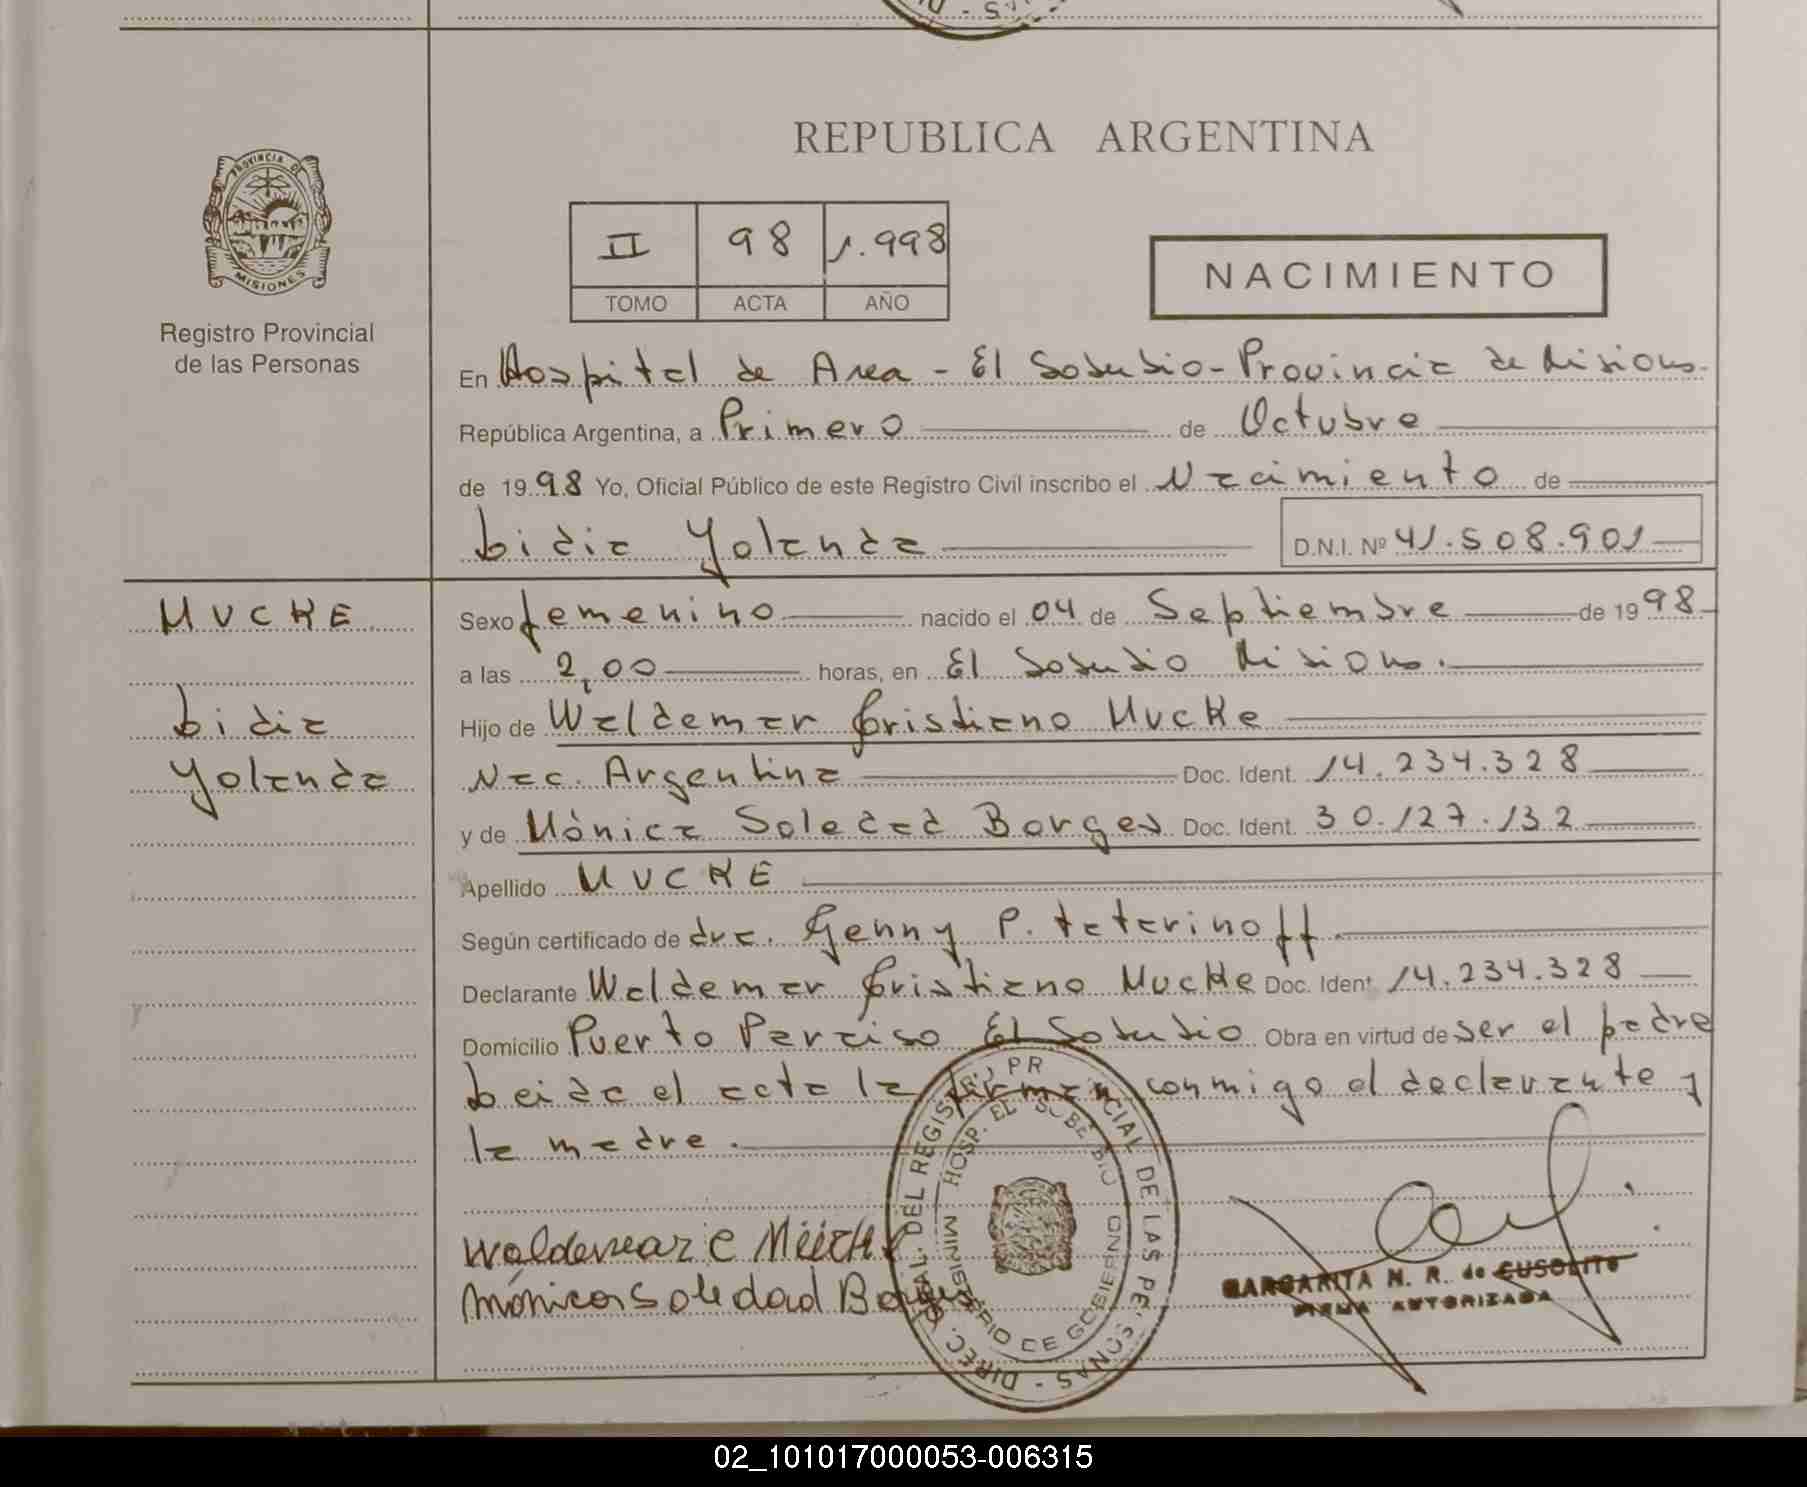 REPUBLICA ARGENTINA
PROVINCIA DE
MISIONES
Registro Provincial
de las Personas
II 98 1.998
TOMO ACTA AÑO
NACIMIENTO
En Hospital de Area - El Soberbio - Provincia de Misiones.
República Argentina, a Primero de Octubre
de 1998 Yo, Oficial Público de este Registro Civil inscribo el Nacimiento de
Lidia Yolanda D.N.I. Nº 41.508.901
MUCKE
Lidia
Yolanda
Sexo femenino nacido el 04 de Septiembre de 1998
a las 2,00 horas, en El Soberbio Misiones.
Hijo de Waldemar Cristiano Mucke
Nac. Argentina Doc. Ident. 14.234.328
y de Mónica Soledad Borges Doc. Ident. 30.127.132
Apellido MUCKE
Según certificado de dra. Genny P. Tatarinoff.
Declarante Waldemar Cristiano Mucke Doc. Ident. 14.234.328
Domicilio Puerto Paraiso El Soberbio Obra en virtud de ser el padre
Leida el acta la firman conmigo el declarante y
la madre.
Waldemar C
Mónica Soledad Borges
DIREC. GRAL. DEL REGISTRO PR CIAL DE LAS PERSONAS
HOSP. EL SOBERBIO
MINISTERIO DE GOBIERNO
MARGARITA N. R. de CUSOLITO
FIRMA AUTORIZADA
02_101017000053-006315